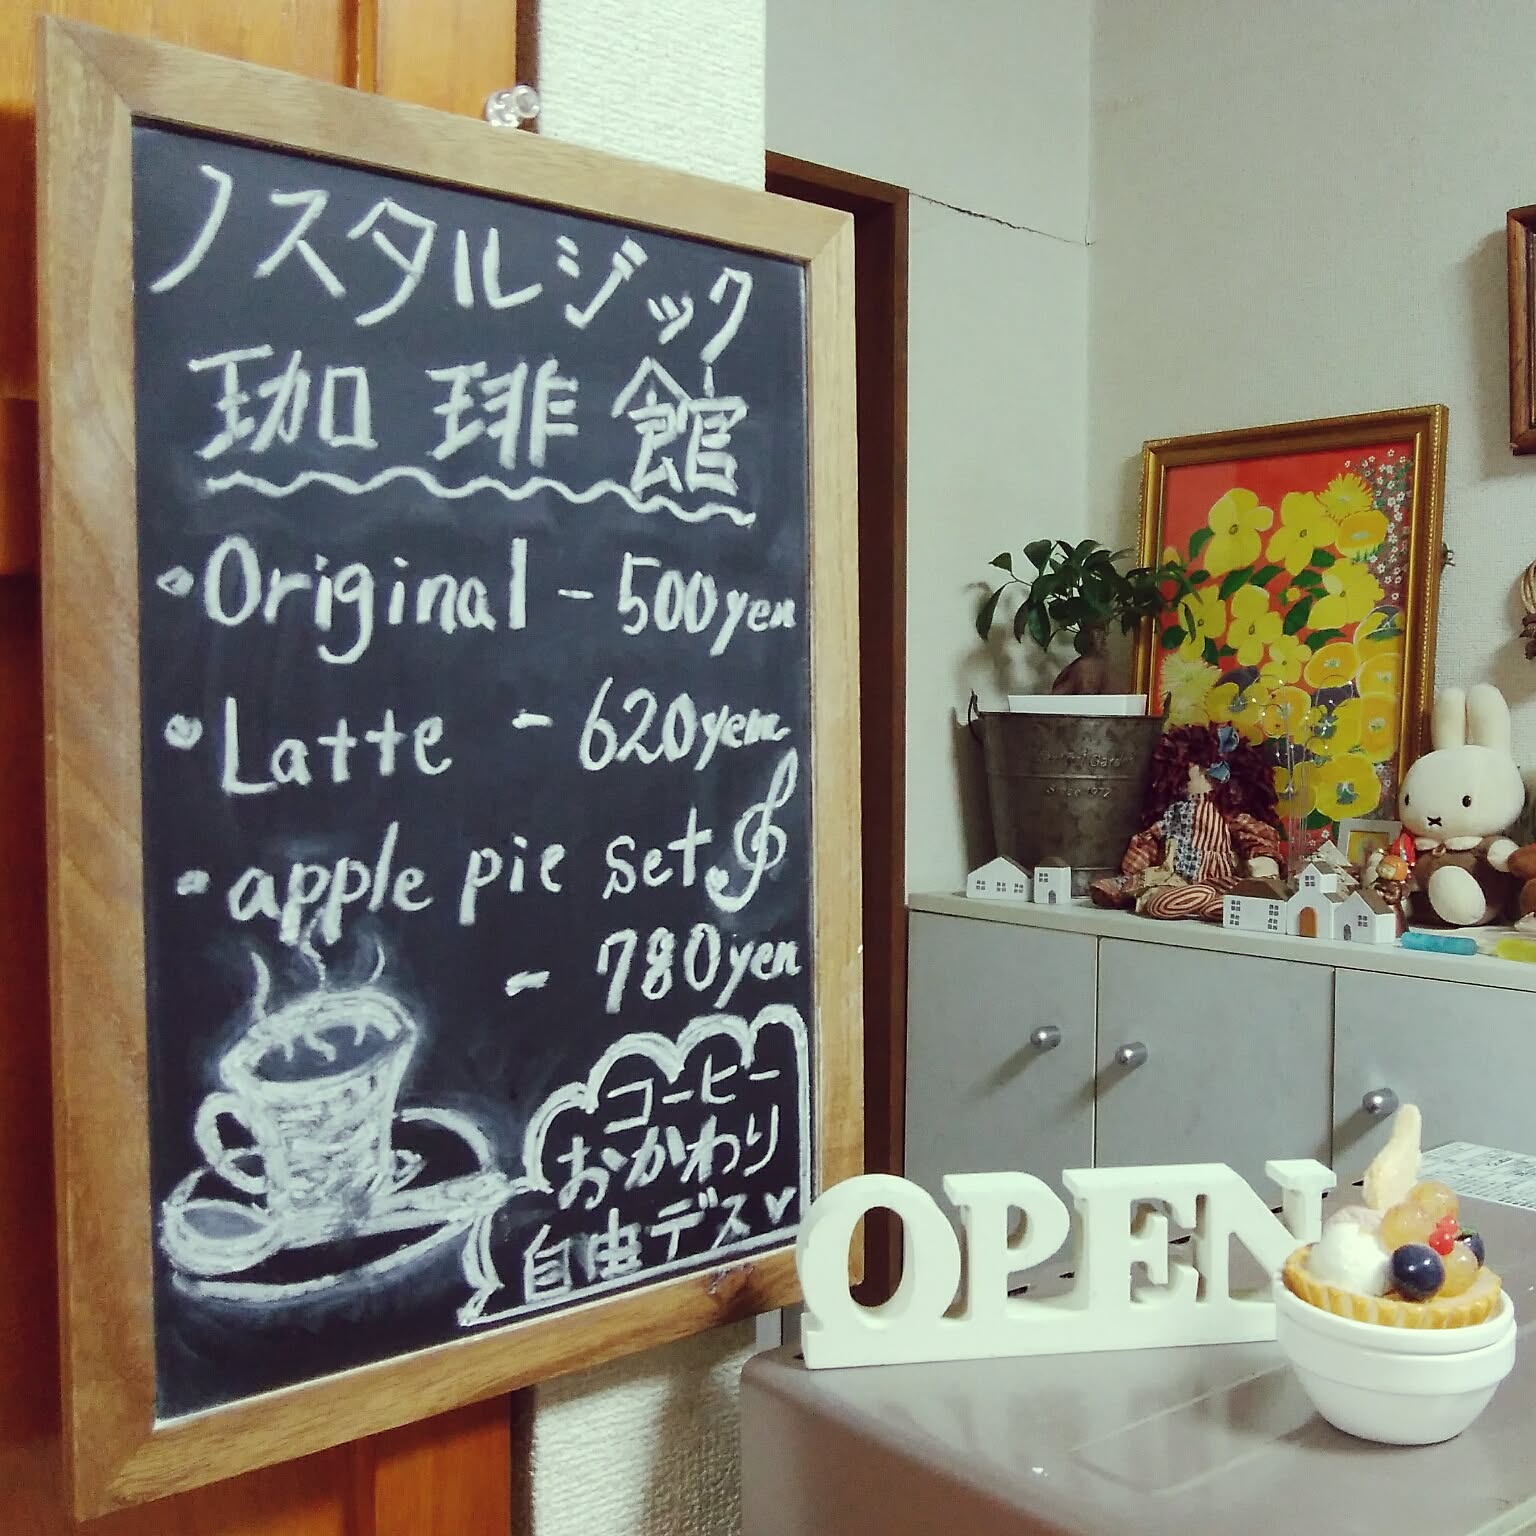 ノスタルジック
珈琲館
・Original - 500yen
・Latte - 620yen
・apple pie set
- 780yen
コーヒー
おかわり
自由デス♥
OPEN